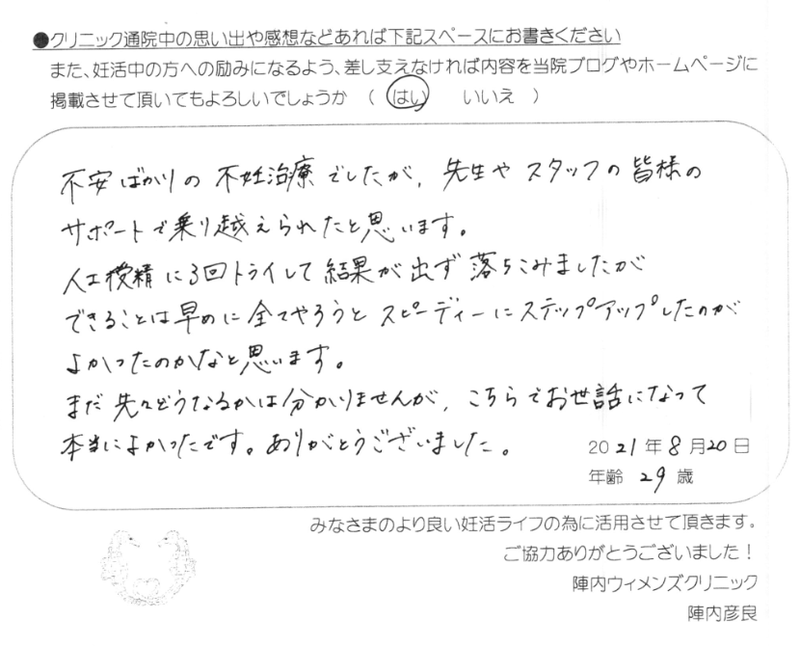 ●クリニック通院中の思い出や感想などあれば下記スペースにお書きください
また、妊活中の方への励みになるよう、差し支えなければ内容を当院ブログやホームページに
掲載させて頂いてもよろしいでしょうか （ はい いいえ ）
不安ばかりの不妊治療でしたが、先生やスタッフの皆様の
サポートで乗り越えられたと思います。
人工授精に3回トライして結果が出ず落ちこみましたが
できることは早めに全てやろうとスピーディーにステップアップしたのが
よかったのかなと思います。
まだ先々どうなるかは分かりませんが、こちらでお世話になって
本当によかったです。ありがとうございました。
2021年8月20日
年齢 29歳
みなさまのより良い妊活ライフの為に活用させて頂きます。
ご協力ありがとうございました！
陣内ウィメンズクリニック
陣内彦良